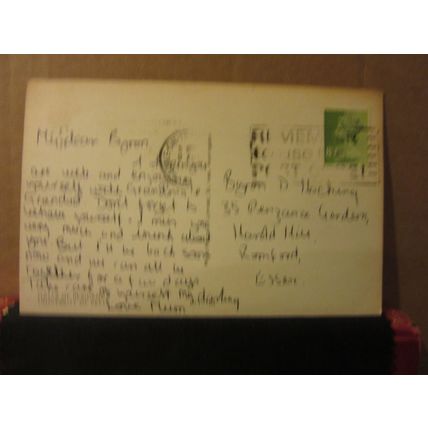 My dear Byron,
I hope you
are well and enjoying
yourself with Grandma &
Grandad. Don't forget to
behave yourself. I miss
very much and think about
you. But I'll be back soon
now and we can all be
together for a few days
Take care of yourself my darling
Love Mum
Byron D Hocking
35 Penzance Gardens,
Harold Hill,
Romford,
Essex.